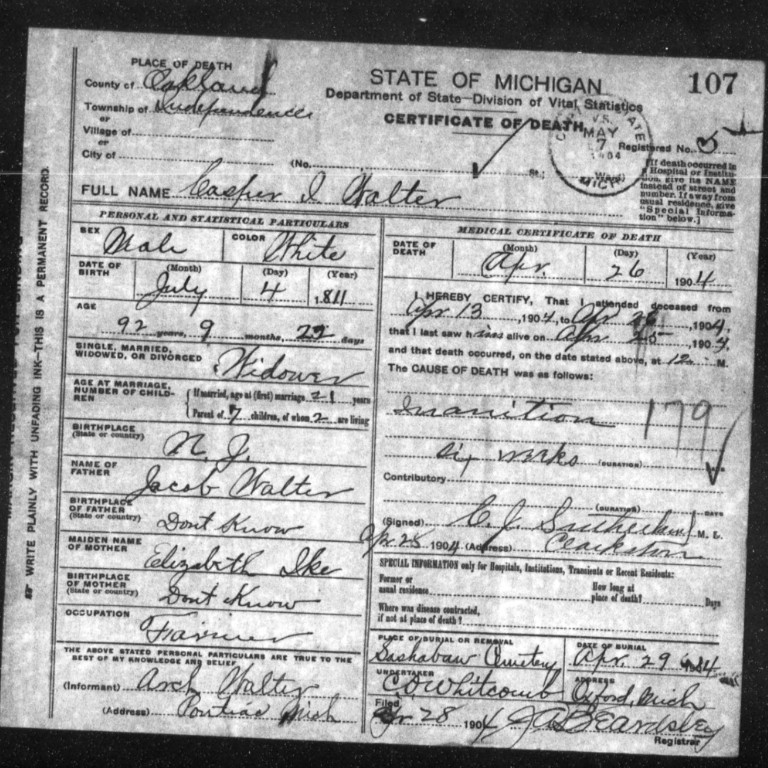 107
PLACE OF DEATH
County of Oakland
Township of Independence
or
Village of
or
City of
STATE OF MICHIGAN
Department of State—Division of Vital Statistics
CERTIFICATE OF DEATH
V.S.
MAY
7
1904
MICH
Registered No. 5
(No. St.; Ward)
[If death occurred in a Hospital or Institution, give its NAME instead of street and number. If away from usual residence, give "Special Information" below.]
FULL NAME Casper I Walter
PERSONAL AND STATISTICAL PARTICULARS
SEX Male
COLOR White
DATE OF BIRTH (Month) (Day) (Year)
July 4 1811
AGE
92 years, 9 months, 22 days
SINGLE, MARRIED, WIDOWED, OR DIVORCED
Widower
AGE AT MARRIAGE, NUMBER OF CHILDREN
If married, age at (first) marriage 21 years
Parent of 7 children, of whom 2 are living
BIRTHPLACE
(State or country) N. J.
NAME OF FATHER
Jacob Walter
BIRTHPLACE OF FATHER
(State or country) Dont Know
MAIDEN NAME OF MOTHER
Elizabeth Ike
BIRTHPLACE OF MOTHER
(State or country) Dont Know
OCCUPATION
Farmer
THE ABOVE STATED PERSONAL PARTICULARS ARE TRUE TO THE BEST OF MY KNOWLEDGE AND BELIEF
(Informant) Arch Walter
(Address) Pontiac Mich
MEDICAL CERTIFICATE OF DEATH
DATE OF DEATH (Month) (Day) (Year)
Apr. 26 1904
I HEREBY CERTIFY, That I attended deceased from
Apr 13, 1904, to Apr 26, 1904,
that I last saw him alive on Apr 25, 1904,
and that death occurred, on the date stated above, at 12 M.
The CAUSE OF DEATH was as follows:
Inanition 179
six weeks (DURATION) DAYS
Contributory
(DURATION) DAYS
(Signed) C. J. Sutherland M. D.
Apr. 28 1904 (Address) Clarkston
SPECIAL INFORMATION only for Hospitals, Institutions, Transients or Recent Residents:
Former or usual residence
How long at place of death? Days
Where was disease contracted, if not at place of death?
PLACE OF BURIAL OR REMOVAL
Sashabaw Cemetery
DATE OF BURIAL
Apr. 29 1904
UNDERTAKER
C O Whitcomb
ADDRESS
Oxford, Mich
Filed
Apr 28 1904 J A Beardsley
Registrar
WRITE PLAINLY WITH UNFADING INK—THIS IS A PERMANENT RECORD.